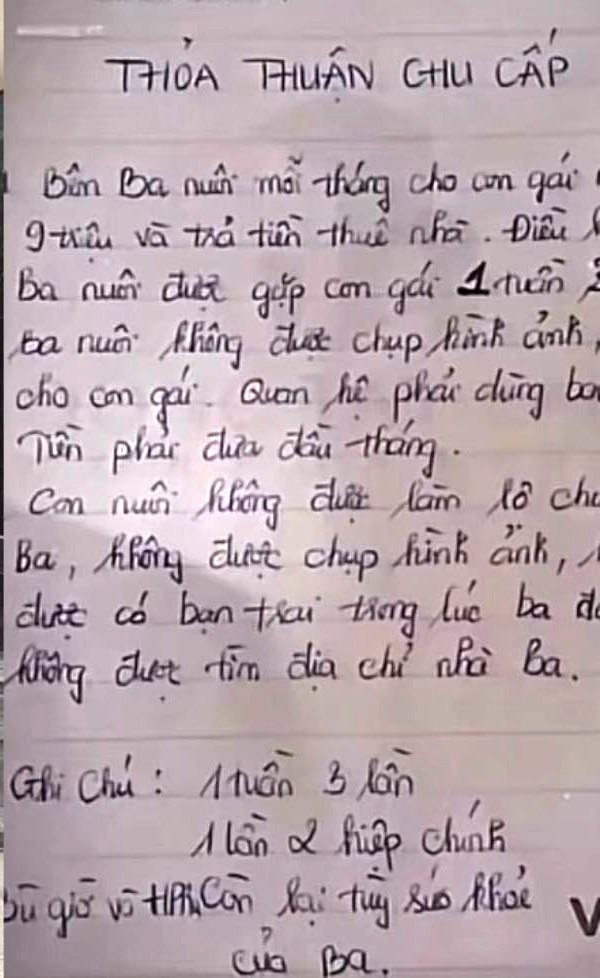 THỎA THUẬN CHU CẤP
Bên Ba nuôi mỗi tháng cho con gái
9 triệu và trả tiền thuê nhà. Điều
Ba nuôi được gặp con gái 1 tuần 3
ba nuôi không được chụp hình ảnh,
cho con gái. Quan hệ phải dùng
Tiền phải đưa đầu tháng.
Con nuôi không được làm lộ
Ba, không được chụp hình ảnh,
được có bạn trai trong lúc ba
không được tìm địa chỉ nhà Ba.
Ghi Chú: 1 tuần 3 lần
1 lần 2 hiệp chính
Bù giờ và Còn lại tùy sức khỏe
của Ba.